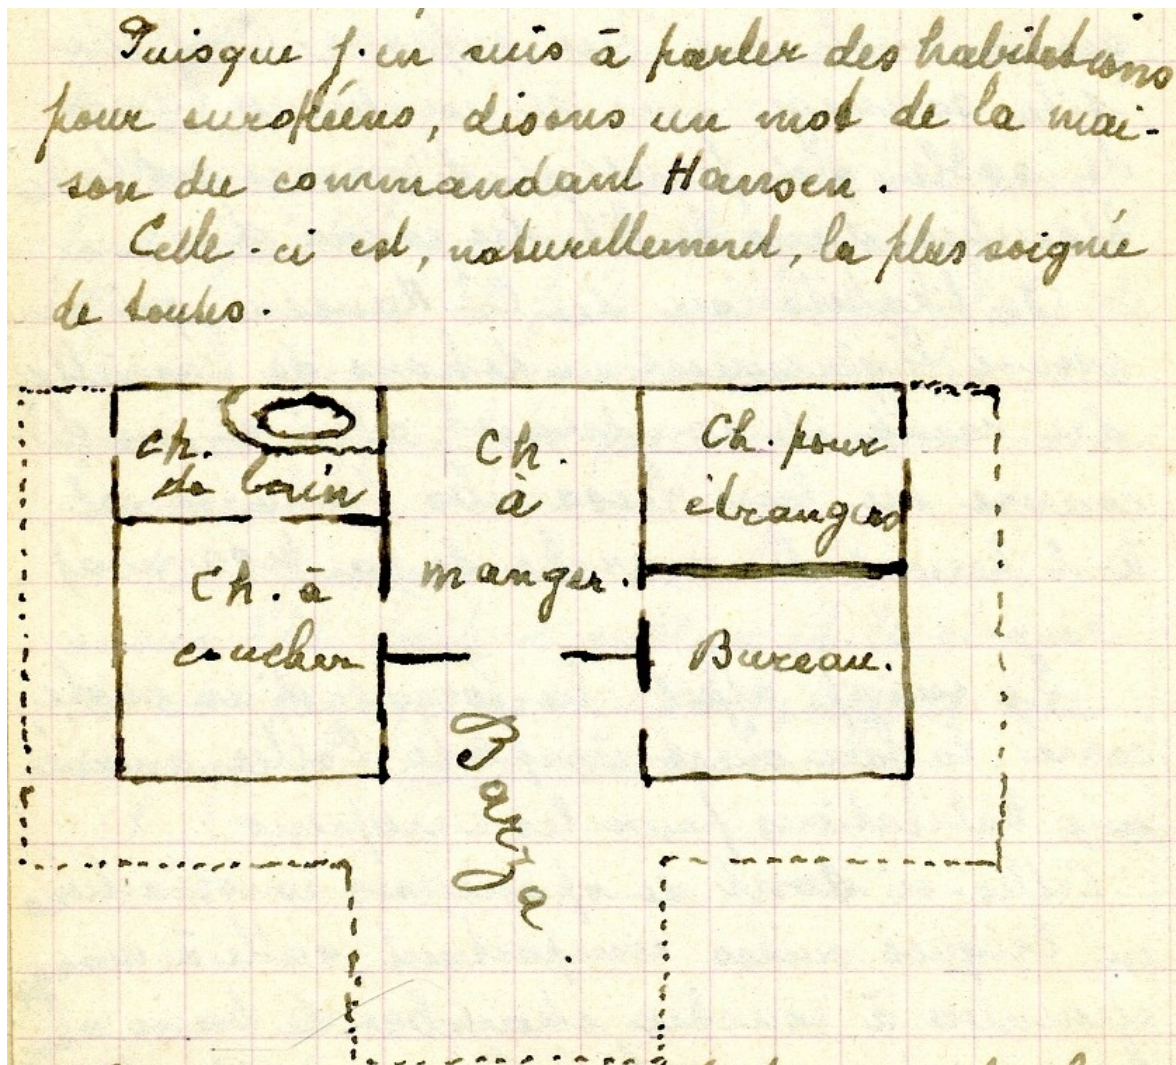 Puisque j'en suis à parler des habitations
pour européens, disons un mot de la mai-
son du commandant Hansen.
Celle-ci est, naturellement, la plus soignée
de toutes.
Ch.
de bain
Ch.
à
manger.
Ch. pour
étrangers
Ch. à
coucher
Bureau.
Barza.